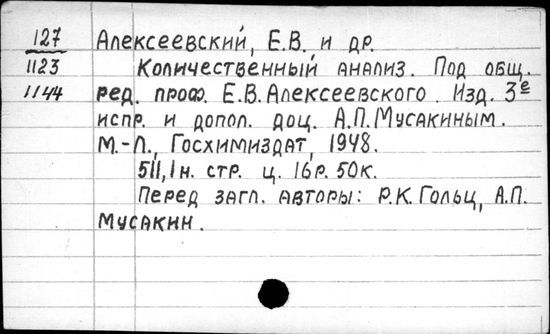 127 Алексеевский, Е.В. и др.
1123 Количественный анализ. Под общ.
1144 ред. проф. Е.В. Алексеевского. Изд. 3е
испр. и допол. доц. А.П. Мусакиным.
М.-Л., Госхимиздат, 1948.
511, 1 н. стр. ц. 16 р. 50 к.
Перед загл. авторы: Р.К. Гольц, А.П.
Мусакин.